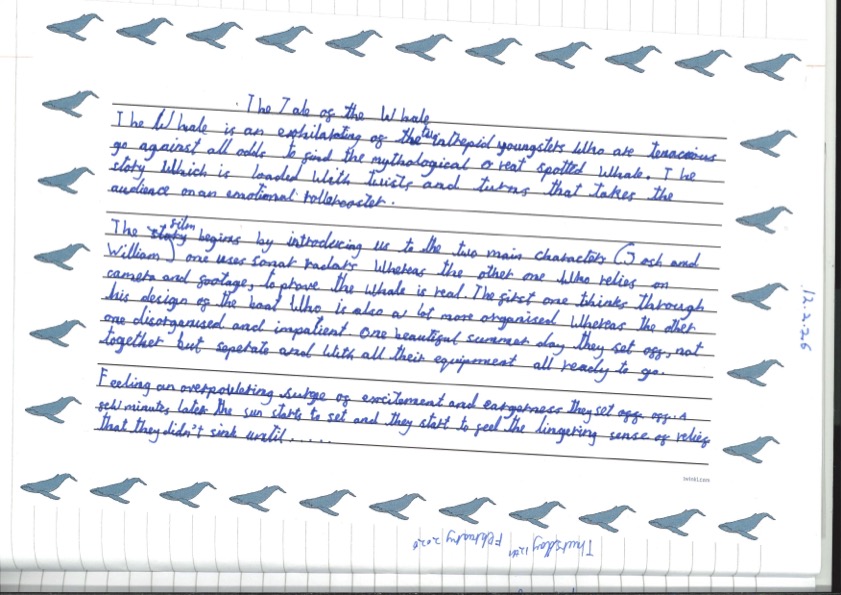 The Tale of the Whale
The Whale is an exhilarating of the two intrepid youngsters who are tenacious
go against all odds to find the mythological Great spotted whale. The
story which is loaded with twists and turns that takes the
audience on an emotional rollercoaster.
The story film begins by introducing us to the two main characters (Josh and
William) one uses sonar radars whereas the other one who relies on
camera and footage, to prove the whale is real. The first one thinks through
his design of the boat who is also a lot more organised whereas the other
one disorganised and impatient. One beautiful summer day they set off, not
together but seperate and with all their equipement all ready to go.
Feeling an overpowering surge of excitement and eargerness they set off off. A
few minutes later the sun starts to set and they start to feel the lingering sense of relief
that they didn't sink until......
twinkl.com
12.2.26
Thursday 12th February 2026